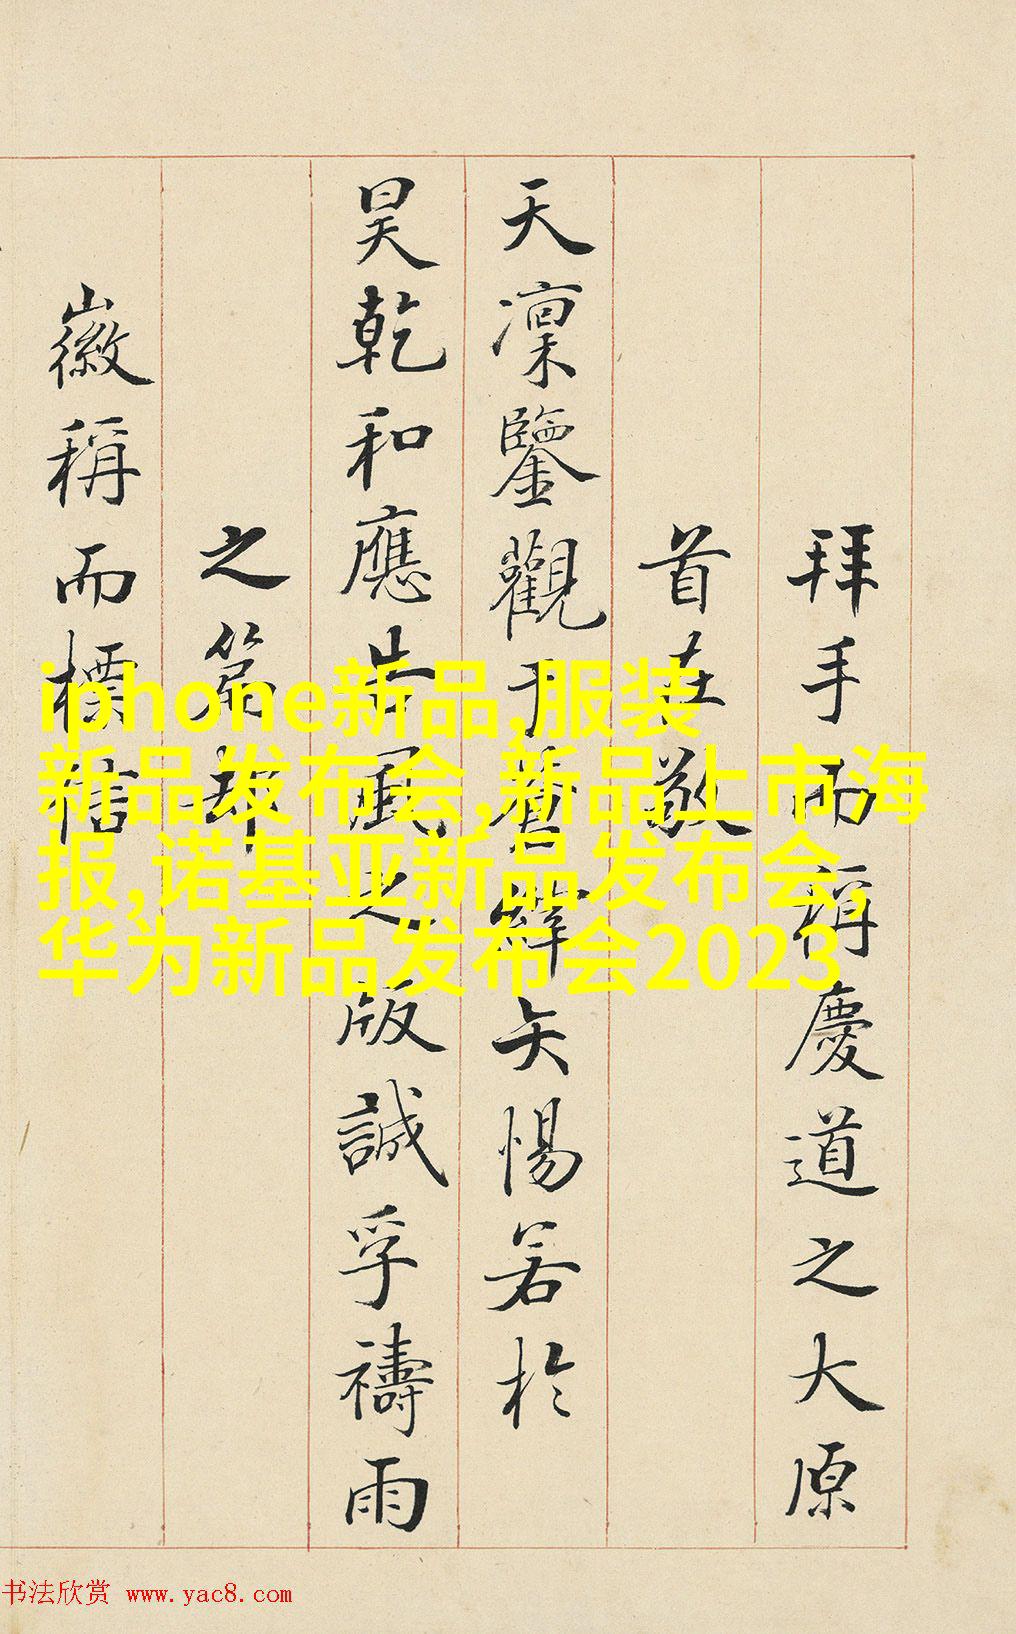 拜手而稱慶道之大原
首在敬
天凜鑒觀于蒼縡矢惕若於
昊乾和應占風之版誠孚禱雨
之篇却
徽稱而標信
iphone新品,服装
新品发布会,新品上市海
报,诺基亚新品发布会,
华为新品发布会2023
书法欣赏 www.yac8.com